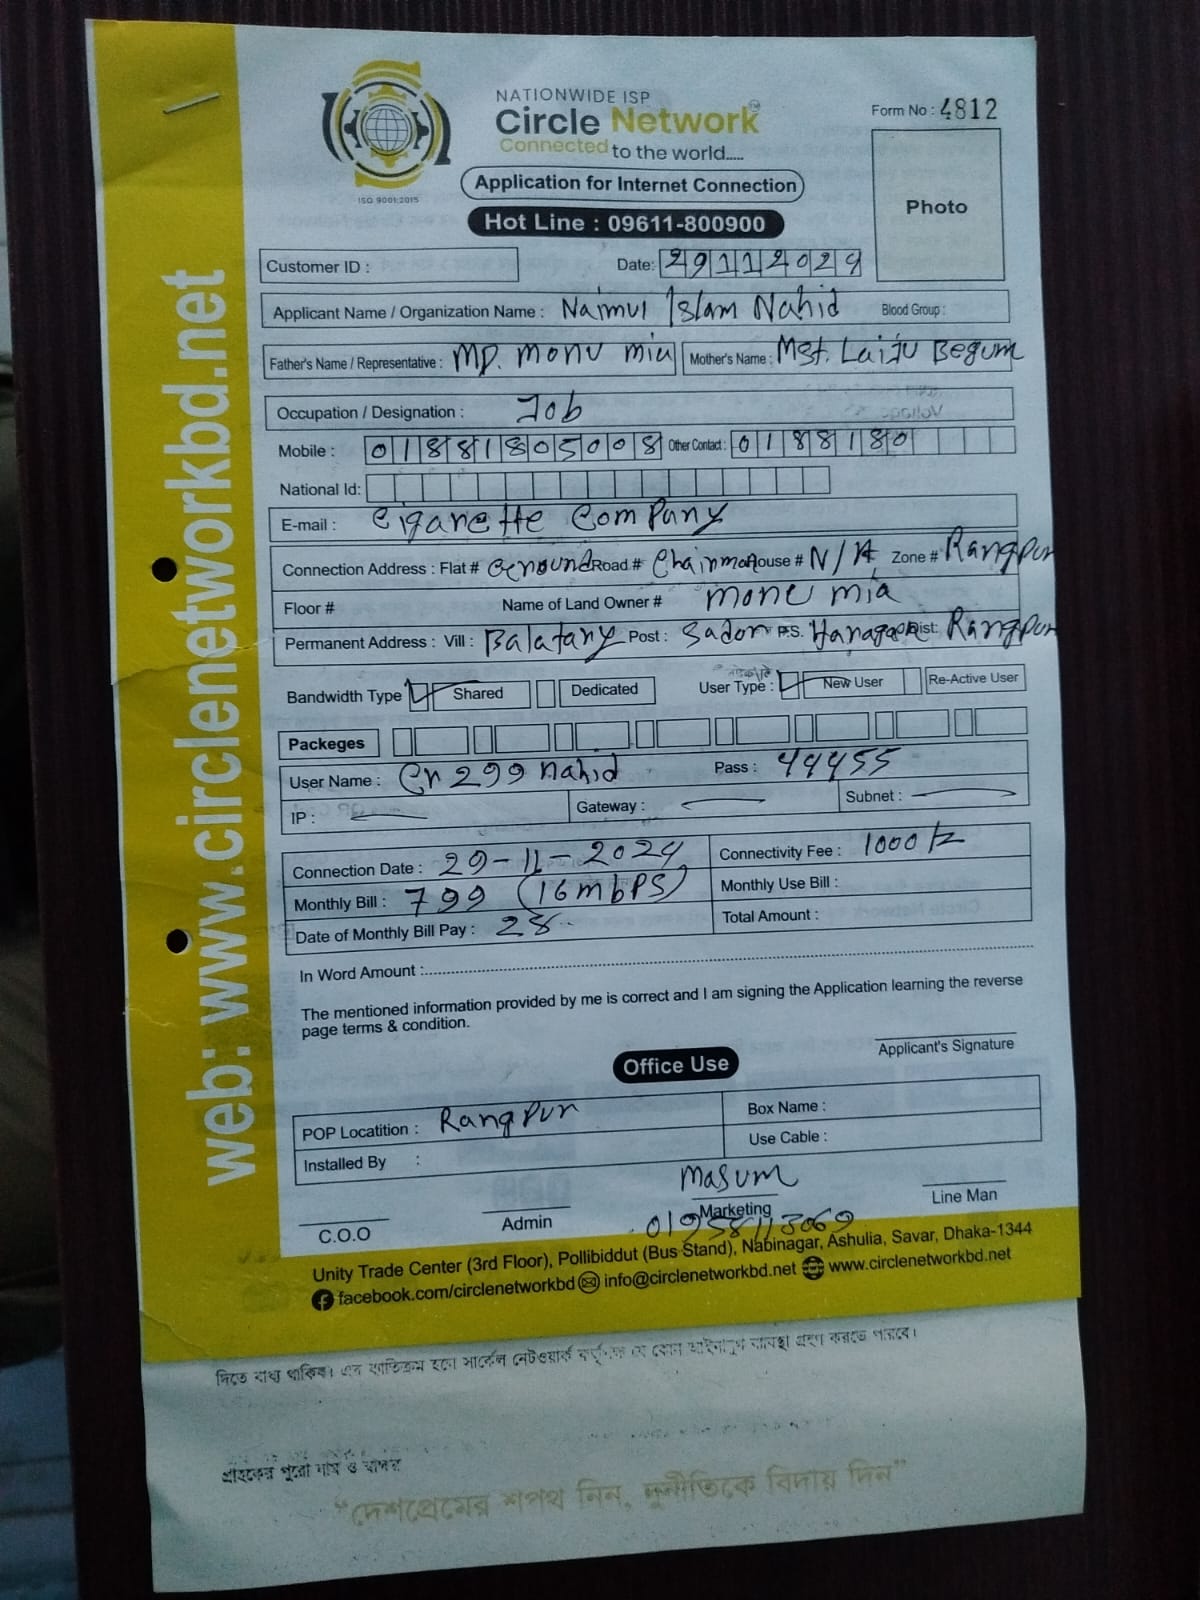 NATIONWIDE ISP
Circle Network
Connected to the world.....
Form No : 4812
ISO 9001:2015
Application for Internet Connection
Hot Line : 09611-800900
Photo
Customer ID :
Date: 29112024
Applicant Name / Organization Name : Naimul Islam Nahid Blood Group :
Father's Name / Representative : MD. monu mia Mother's Name : Mst. Laiju Begum
Occupation / Designation : Job
Mobile : 01881805008 Other Contact : 0188180
National Id:
E-mail : Cigarette Company
Connection Address : Flat # Ground Road # Chairman House # N/A Zone # Rangpur
Floor # Name of Land Owner # mone mia
Permanent Address : Vill : Balatary Post : Sador P.S. Dist: Rangpur
Bandwidth Type Shared Dedicated User Type : New User Re-Active User
Packeges
User Name : Cn299nahid Pass : 44455
IP : Gateway : Subnet :
Connection Date : 29-11-2024 Connectivity Fee : 1000
Monthly Bill : 799 (16mbps) Monthly Use Bill :
Date of Monthly Bill Pay : 28 Total Amount :
In Word Amount :
The mentioned information provided by me is correct and I am signing the Application learning the reverse
page terms & condition.
Applicant's Signature
Office Use
POP Locatition : Rangpur Box Name :
Installed By : Use Cable :
Masum
C.O.O Admin Marketing Line Man
01958113069
Unity Trade Center (3rd Floor), Pollibiddut (Bus Stand), Nabinagar, Ashulia, Savar, Dhaka-1344
facebook.com/circlenetworkbd info@circlenetworkbd.net www.circlenetworkbd.net
web: www.circlenetworkbd.net
দিতে বাধ্য থাকিব। এর ব্যতিক্রম হলে সার্কেল নেটওয়ার্ক কর্তৃপক্ষ যে কোন আইনানুগ ব্যবস্থা গ্রহণ করতে পারবে।
গ্রাহকের পুরো নাম ও স্বাক্ষর
“দেশপ্রেমের শপথ নিন, দুর্নীতিকে বিদায় দিন”